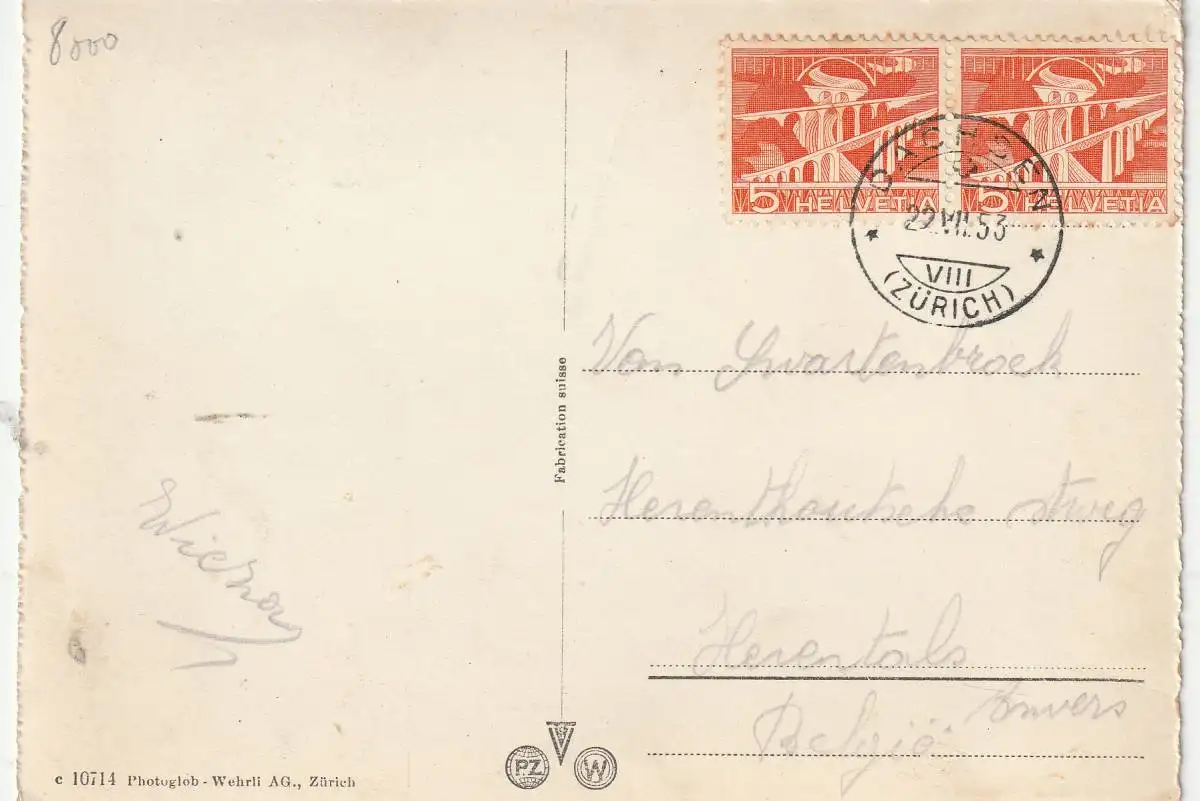 8000
5 HELVETIA
5 HELVETIA
DACHSEN
22.VII.53
VIII
(ZÜRICH)
Fabrication suisse
Van Swartenbroek
Herenthoutsche stweg
Herentals
Anvers
België
c 10714 Photoglob-Wehrli AG., Zürich
PZ
W